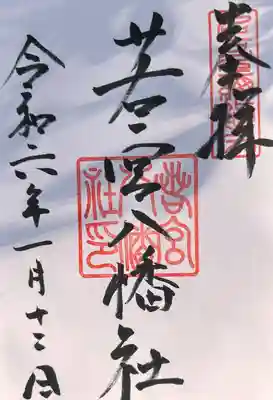 奉拝
若宮八幡社
令和六年一月十二日
若宮八幡社印